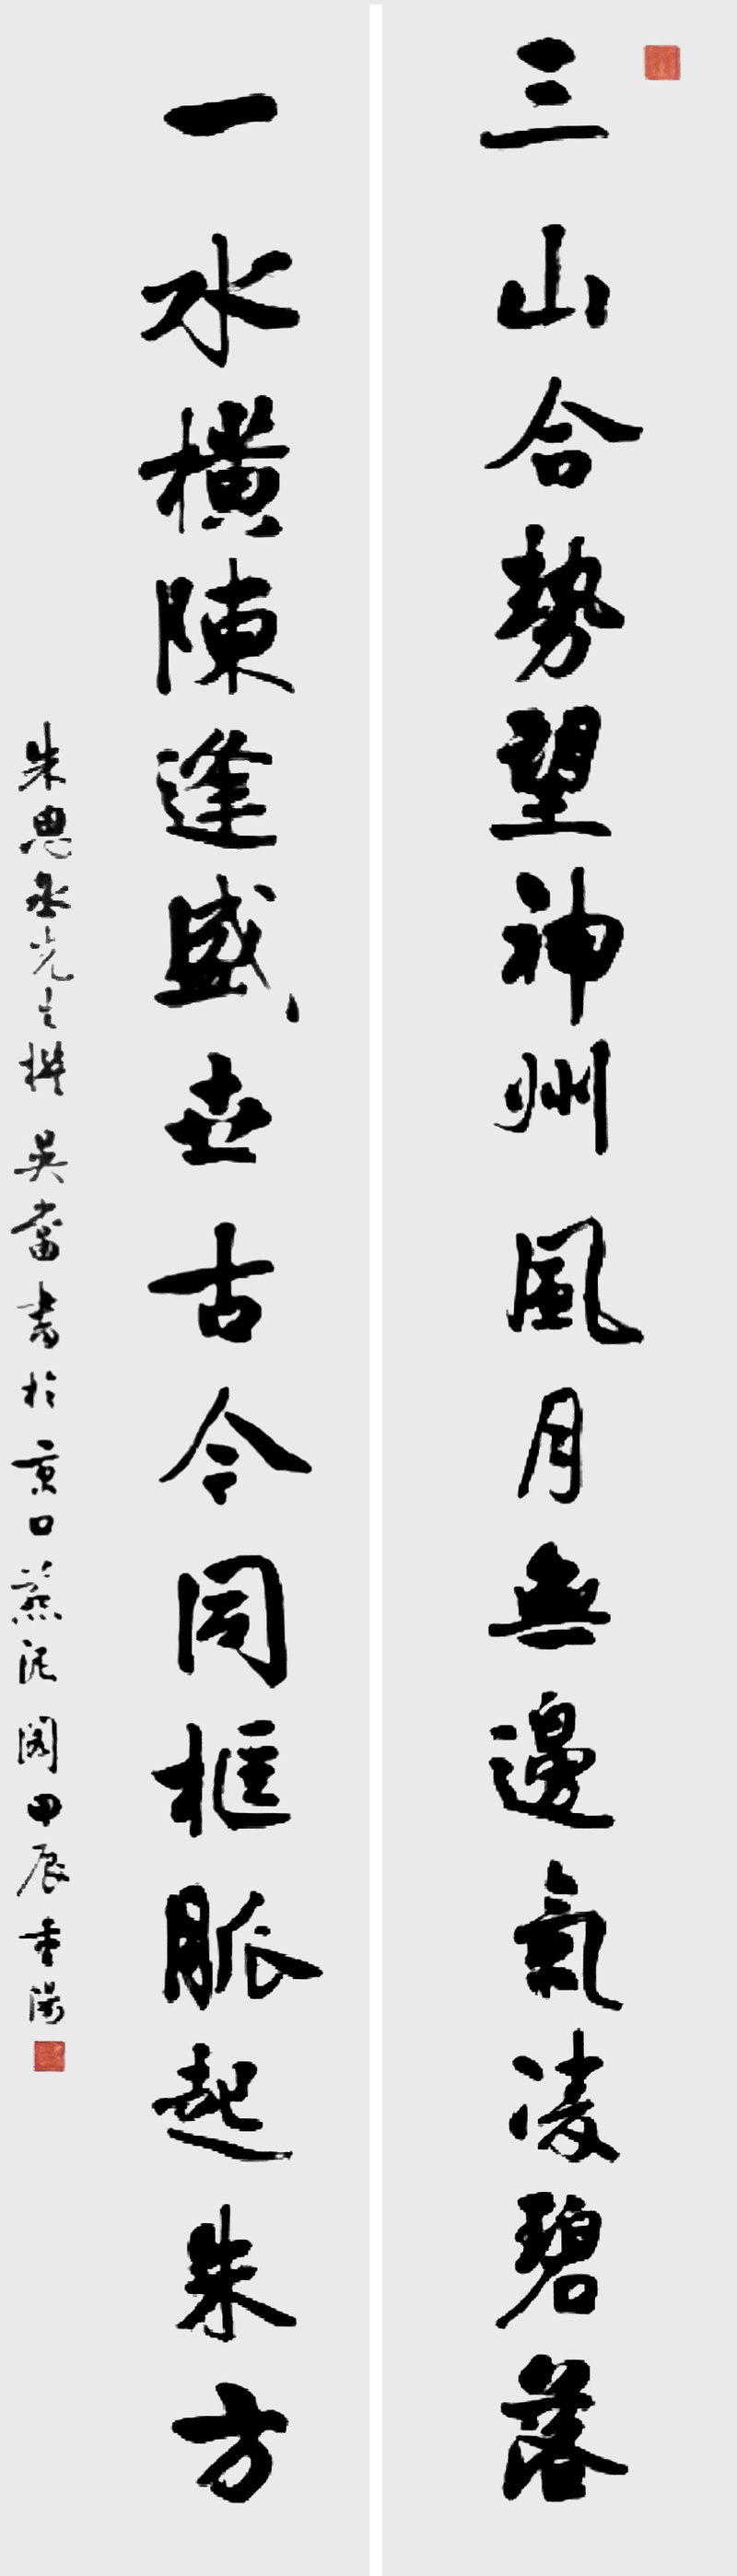 三山合勢望神州風月無邊氣凌碧落
一水橫陳逢盛世古今同框脈起朱方
朱思丞先生撰 吳奮書於京口燕泥閣甲辰重陽